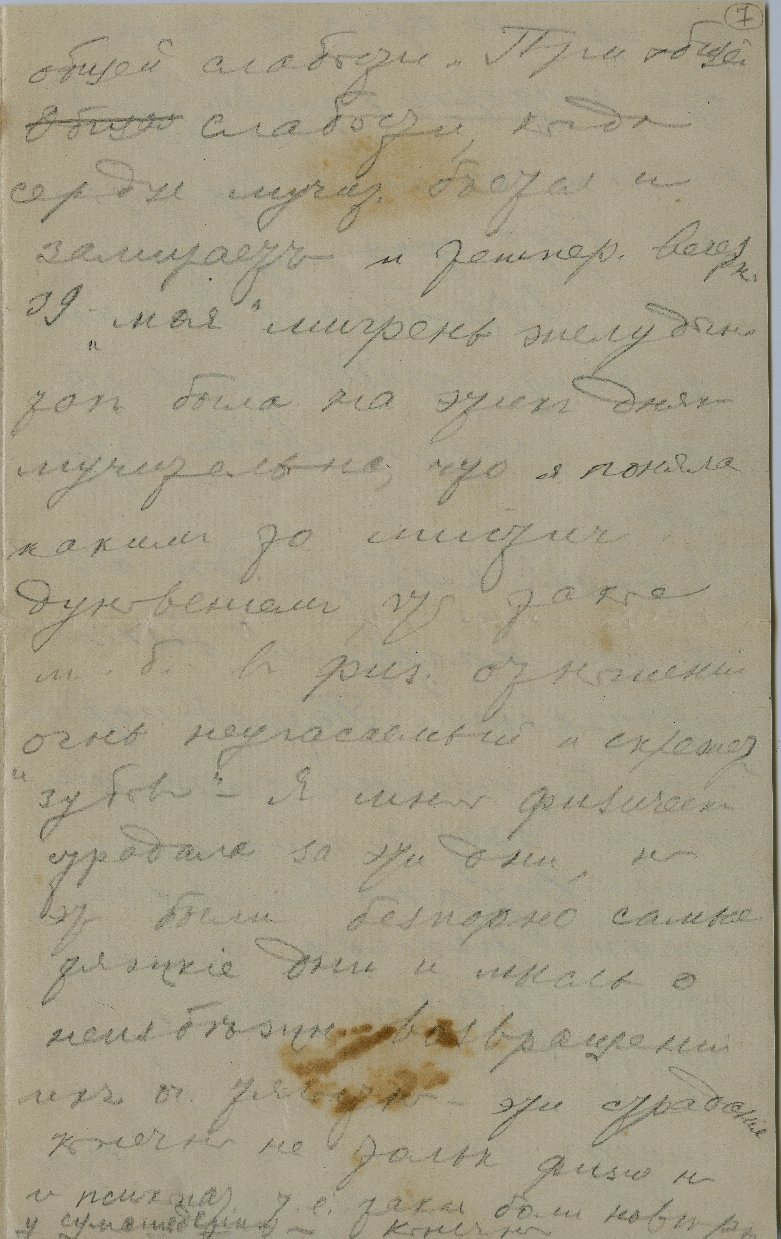 7
общей слабости. При общей
общей слабости, когда
сердце мучит. бьется и
замираетъ и темпер. вечер.
39 "моя" мигрень желудочн.
такъ была на этихъ дняхъ
мучительна, что я поняла
какимъ то мистич
духовенiемъ, что такое
м. б. въ физ. отношенiи
огнь неугасаемый и скрежет
"зубовъ" – Я много физически
страдала за эти дни, но
эт были безспорно самые
тяжкiе дни и мысль о
неизбѣжн. возвращенiи
ихъ – эти страданiя
конечно не только физич н
и психопат. т. е. такiя боли
у сумасшедшихъ – конечно